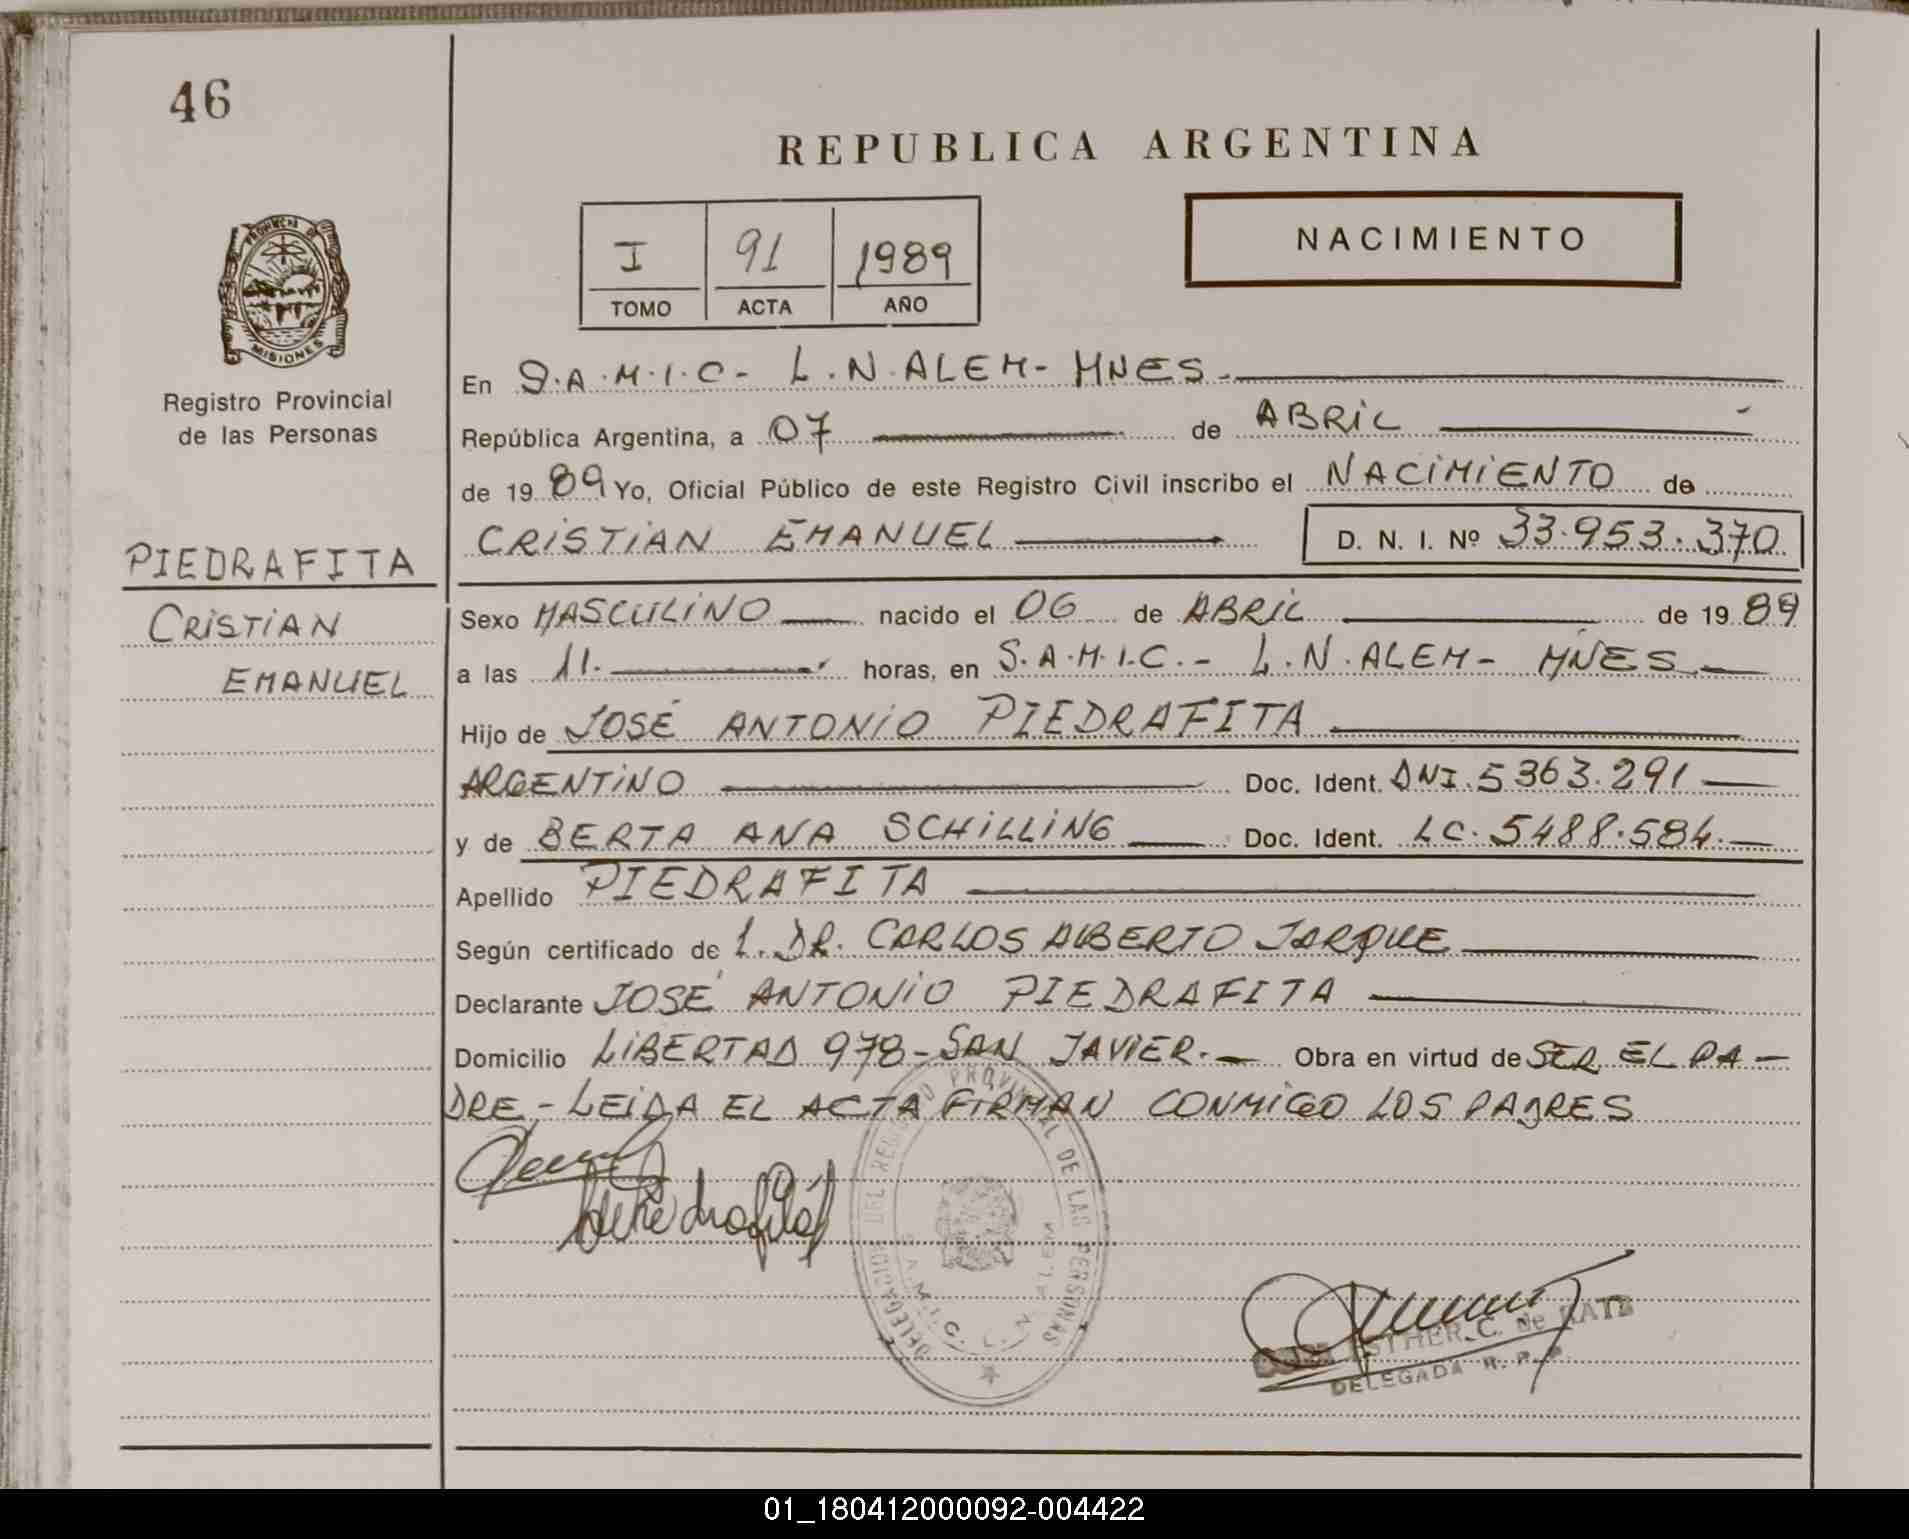 46
REPUBLICA ARGENTINA
NACIMIENTO
I 91 1989
TOMO ACTA AÑO
PROVINCIA DE
MISIONES
Registro Provincial
de las Personas
PIEDRAFITA
CRISTIAN
EMANUEL
En S.A.M.I.C- L.N.ALEM- MNES.
República Argentina, a 07 de ABRIL
de 19 89 Yo, Oficial Público de este Registro Civil inscribo el NACIMIENTO de
CRISTIAN EMANUEL D. N. I. Nº 33.953.370
Sexo MASCULINO nacido el 06 de ABRIL de 19 89
a las 11. horas, en S.A.M.I.C.- L.N.ALEM- MNES
Hijo de JOSÉ ANTONIO PIEDRAFITA
ARGENTINO Doc. Ident. DNI.5363.291
y de BERTA ANA SCHILLING Doc. Ident. LC.5488.584.
Apellido PIEDRAFITA
Según certificado de L. DR. CARLOS ALBERTO JARQUE
Declarante JOSÉ ANTONIO PIEDRAFITA
Domicilio LIBERTAD 978-SAN JAVIER.- Obra en virtud de SER EL PA-
DRE-LEIDA EL ACTA FIRMAN CONMIGO LOS PADRES
DELEGACION DEL REGISTRO PROVINCIAL DE LAS PERSONAS
S.A.M.I.C. L. N. ALEM
ESTHER C. de
DELEGADA R. P. P.
01_180412000092-004422